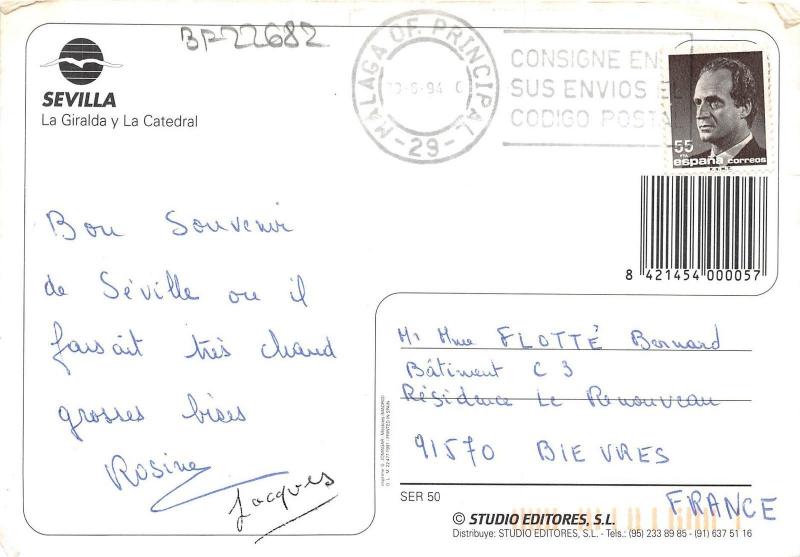 BP22682
MALAGA OF. PRINCIPAL
-6-94
- 29 -
CONSIGNE EN
SUS ENVIOS EL
CODIGO POSTA
55
PTA
españa correos
F.N.M.T.
SEVILLA
La Giralda y La Catedral
8 421454 000057
Bon Souvenir
de Séville ou il
faisait très chaud
grosses bises
Rosine
Jacques
Mr Mme FLOTTÉ Bernard
Bâtiment C 3
Résidence Le Renouveau
91570 BIEVRES
FRANCE
SER 50
© STUDIO EDITORES, S.L.
Distribuye: STUDIO EDITORES, S.L. - Tels.: (95) 233 89 85 - (91) 637 51 16